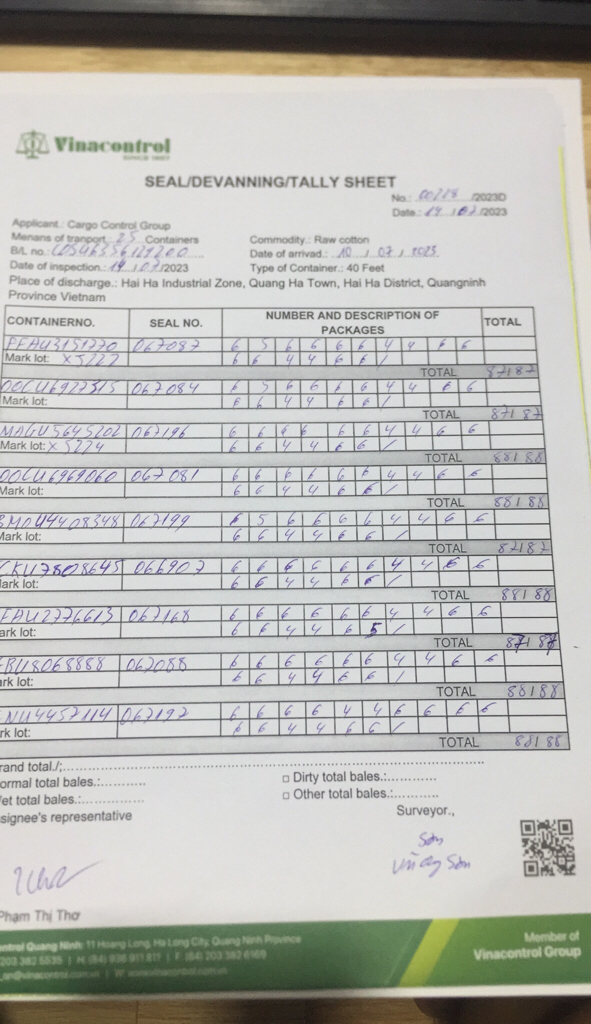 Vinacontrol
SINCE 1957
SEAL/DEVANNING/TALLY SHEET
No.: 00218 /2023D
Date.: 14 / 07 /2023
Applicant.: Cargo Control Group
Menans of tranport.: 25 Containers
Commodity.: Raw cotton
B/L no.:
Date of arrivad.: 10 / 07 / 2023
Date of inspection.: 14 / 07 /2023
Type of Container.: 40 Feet
Place of discharge.: Hai Ha Industrial Zone, Quang Ha Town, Hai Ha District, Quangninh
Province Vietnam
CONTAINERNO. SEAL NO. NUMBER AND DESCRIPTION OF PACKAGES TOTAL
067087 6 5 6 6 6 6 4 4 6 6
Mark lot: X5227 6 6 4 4 6 6 /
TOTAL 87/87
OOCU6922315 067084 6 5 6 6 6 6 4 4 6 6
Mark lot: 6 6 4 4 6 6 /
TOTAL 87/87
MAGU5645202 067196 6 6 6 6 6 6 4 4 6 6
Mark lot: X5224 6 6 4 4 6 6 /
TOTAL 88/88
OOCU6969060 067081 6 6 6 6 6 6 4 4 6 6
Mark lot: 6 6 4 4 6 6 /
TOTAL 88/88
BMOU4408348 067199 6 5 6 6 6 6 4 4 6 6
Mark lot: 6 6 4 4 6 6 /
TOTAL 87/87
066907 6 6 6 6 6 6 4 4 6 6
ark lot: 6 6 4 4 6 6 /
TOTAL 88/88
FAU2776613 067168 6 6 6 6 6 6 4 4 6 6
ark lot: 6 6 4 4 6 5 /
TOTAL 87/87
FBU8068888 067088 6 6 6 6 6 6 4 4 6 6
ark lot: 6 6 4 4 6 6 /
TOTAL 88/88
NU4457114 067197 6 6 6 6 4 4 6 6 6 6
rk lot: 6 6 4 4 6 6 /
TOTAL 88/88
rand total./:
ormal total bales.:
□ Dirty total bales.:
et total bales.:
□ Other total bales.:
signee's representative
Surveyor.,
Sơn
Sơn
Phạm Thị Thơ
ontrol Quang Ninh: 11 Hoang Long, Ha Long City, Quang Ninh Province
203 382 5535 | H. (84) 936 911 811 | F. (84) 203 382 6169
_qn@vinacontrol.com.vn | W: www.vinacontrol.com.vn
Member of
Vinacontrol Group